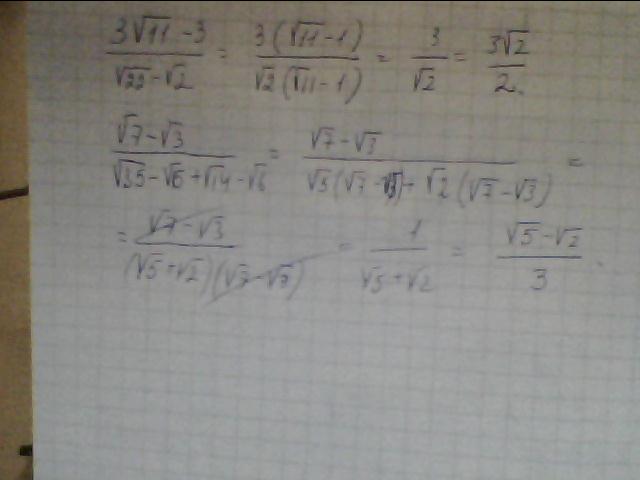 (3√11 - 3)/(√22 - √2) = 3(√11 - 1)/(√2(√11 - 1)) = 3/√2 = 3√2/2.
(√7 - √3)/(√35 - √6 + √14 - √6) = (√7 - √3)/(√5(√7 - √3) + √2(√7 - √3)) =
= (√7 - √3)/((√5 + √2)(√7 - √3)) = 1/(√5 + √2) = (√5 - √2)/3.